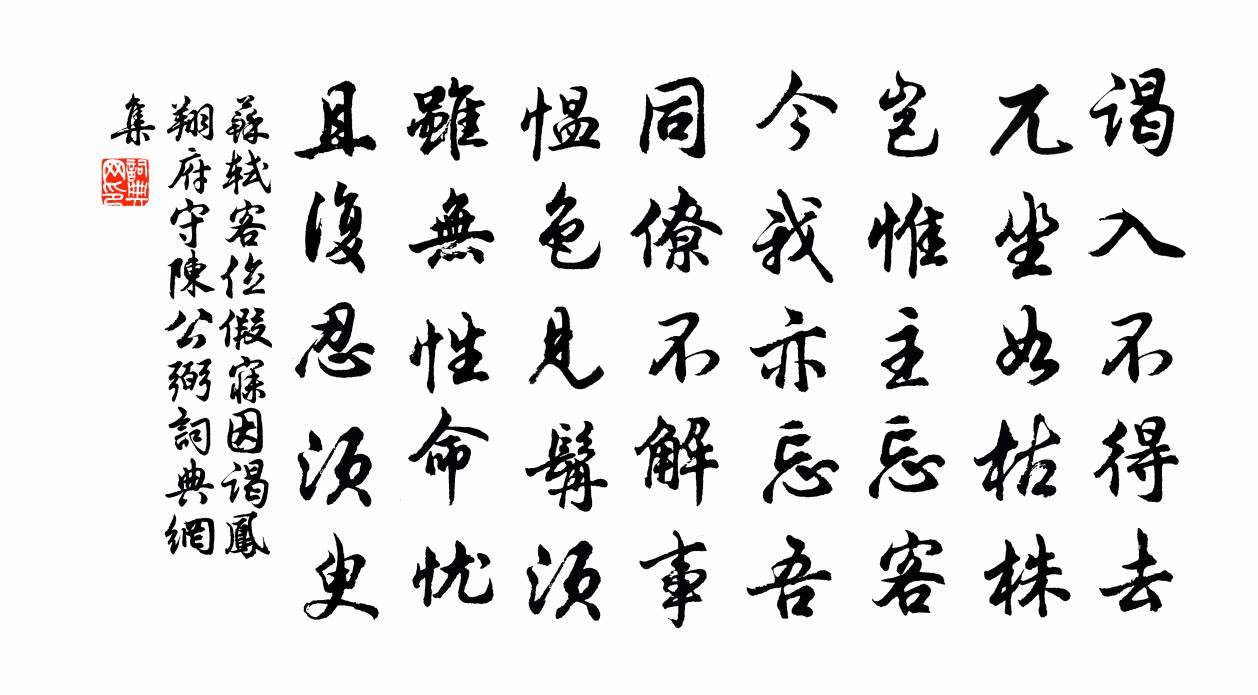 谒入不得去
兀坐如枯株
岂惟主忘客
今我亦忘吾
同僚不解事
愠色见髯须
雖無性命忧
且復忍须臾
蘇轼客位假寐因谒鳳
翔府守陳公弼詞典網
集
詞典
网印